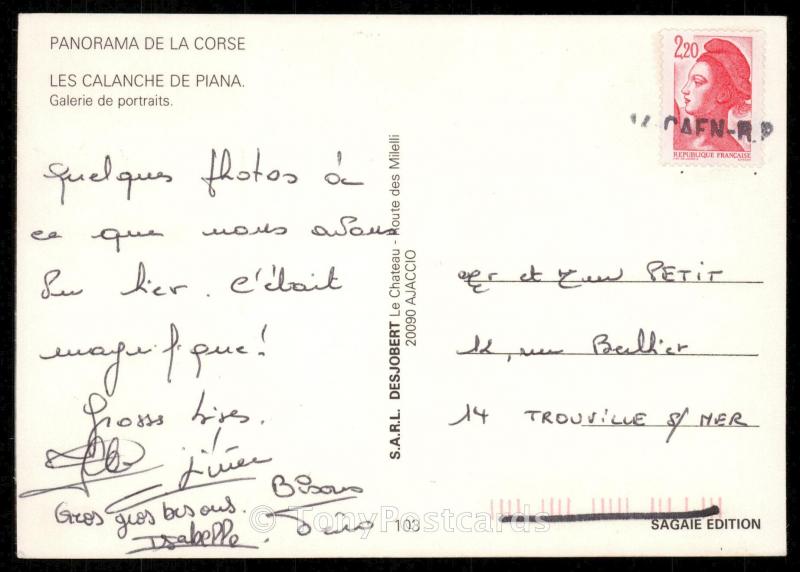 PANORAMA DE LA CORSE
LES CALANCHE DE PIANA.
Galerie de portraits.
2,20
REPUBLIQUE FRANÇAISE
CAEN-R.P
Quelques photos à
ce que nous avons
vu hier. C'était
magnifique!
Grosses bises.
Gros gros bisous.
Isabelle.
Bisous
S.A.R.L. DESJOBERT Le Chateau - Route des Milelli
20090 AJACCIO
et PETIT
12, rue
14 TROUVILLE S/ MER
103
SAGAIE EDITION
© TonyPostcards